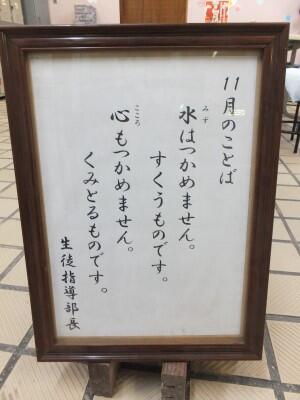 11月のことば
水はつかめません。
すくうものです。
心もつかめません。
くみとるものです。
生徒指導部長
みず
こころ